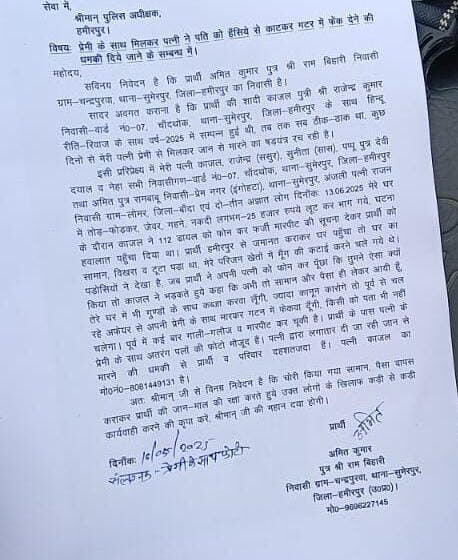 सेवा में,
श्रीमान् पुलिस अधीक्षक,
हमीरपुर।
विषयः प्रेमी के साथ मिलकर पत्नी ने पति को हँसिये से काटकर गटर में फेंक देने की
धमकी दिये जाने के सम्बन्ध में।
महोदय,
सविनय निवेदन है कि प्रार्थी अमित कुमार पुत्र श्री राम बिहारी निवासी
ग्राम-चन्द्रपुरवा, थाना-सुमेरपुर, जिला-हमीरपुर का निवासी है।
सादर अवगत कराना है कि प्रार्थी की शादी काजल पुत्री श्री राजेन्द्र कुमार
निवासी-वार्ड नं0-07, चाँदथोक, थाना-सुमेरपुर, जिला-हमीरपुर के साथ हिन्दू
रीति-रिवाज के साथ वर्ष-2025 में सम्पन्न हुई थी, तब तक सब ठीक-ठाक था, कुछ
दिनों से मेरी पत्नी प्रेमी से मिलकर जान से मारने का षड़यंत्र रच रही है।
इसी परिप्रेक्ष्य में मेरी पत्नी काजल, राजेन्द्र (ससुर), सुनीता (सास), पप्पू पुत्र देवी
दयाल व नेहा सभी निवासीगण-वार्ड नं0-07, चाँदथोक, थाना-सुमेरपुर, जिला-हमीरपुर
तथा अमित पुत्र रामबाबू निवासी-प्रेम नगर (इंगोहटा), थाना-सुमेरपुर, अंजली पत्नी राजन
निवासी ग्राम-लोमर, जिला-बाँदा एवं दो-तीन अज्ञात लोग दिनांकः 13.06.2025 मेरे घर
में तोड़-फोड़कर, जेवर, गहने, नकदी लगभग-25 हजार रुपये लूट कर भाग गये, घटना
के दौरान काजल ने 112 डायल को फोन कर फर्जी मारपीट की सूचना देकर प्रार्थी को
हवालात पहुँचा दिया था। प्रार्थी हमीरपुर से जमानत कराकर घर पहुँचा तो घर का
सामान, बिखरा व टूटा पड़ा था, मेरे परिजन खेतों में मूँग की कटाई करने चले गये थे।
पड़ोसियों ने देखा है, जब प्रार्थी ने अपनी पत्नी को फोन कर पूँछा कि तुमने ऐसा क्यों
किया तो काजल ने भड़कते हुये कहा कि अभी तो सामान और पैसा ही लेकर आयी हूँ,
तेरे घर में भी गुण्डों के साथ कब्जा करवा लूँगी, ज्यादा कानून करोगे तो पूर्व से चल
रहे अफेयर से अपनी प्रेमी के साथ मारकर गटर में फेकवा दूँगी, किसी को पता भी नहीं
चलेगा। पूर्व में कई बार गाली-गलौज व मारपीट कर चुकी है। प्रार्थी के पास पत्नी के
प्रेमी के साथ अतरंग पलों की फोटो मौजूद है। पत्नी द्वारा लगातार दी जा रही जान से
मारने की धमकी से प्रार्थी व परिवार दहशतजदा है। पत्नी काजल का
मो0नं0-8081449131 है।
अतः श्रीमान् जी से विनम्र निवेदन है कि चोरी किया गया सामान, पैसा वापस
कराकर प्रार्थी की जान-माल की रक्षा करते हुये उक्त लोगों के खिलाफ कड़ी से कड़ी
कार्यवाही करने की कृपा करें, श्रीमान् जी की महान दया होगी।
प्रार्थी
अमित
दिनांकः
संलग्नक - प्रेमी के साथ फोटो
अमित कुमार
पुत्र श्री राम बिहारी
निवासी ग्राम-चन्द्रपुरवा, थाना-सुमेरपुर,
जिला-हमीरपुर (उ0प्र0)।
मो0-9696227145